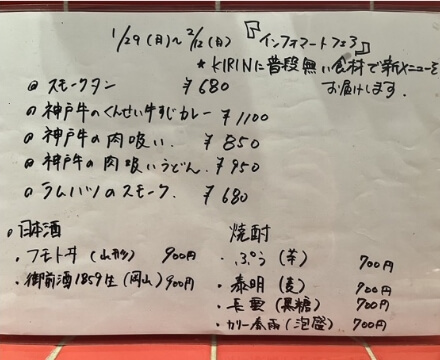 1/29(月)〜2/12(月)『インフォマートフェア』
★KIRINに普段無い食材で新メニューを
お届けします.
スモークタン ¥680
神戸牛のくんせい牛すじカレー ¥1100
神戸牛の肉吸い ¥850
神戸牛の肉吸いうどん. ¥950
ラムハツのスモーク. ¥680
日本酒
・フモト井(山形) 900円
・御前酒1859生(岡山)900円
焼酎
・ぷう(芋) 700円
・泰明(麦) 900円
・長雲(黒糖) 700円
・カリー春雨(泡盛)700円